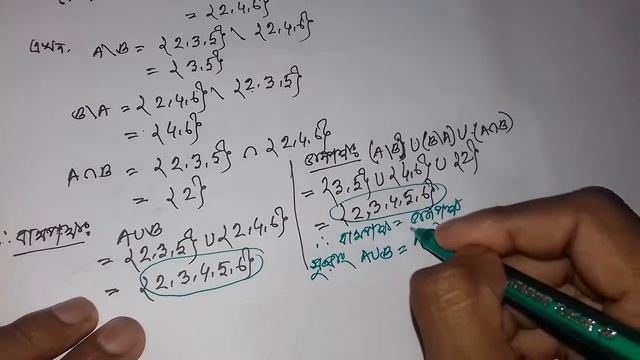 = {2,4,6}
এখন, A\B = {2,3,5} \ {2,4,6}
= {3,5}
B\A = {2,4,6} \ {2,3,5}
= {4,6}
A∩B = {2,3,5} ∩ {2,4,6}
= {2}
∴ বামপক্ষঃ A∪B
= {2,3,5} ∪ {2,4,6}
= {2,3,4,5,6}
ডানপক্ষঃ (A\B) ∪ (B\A) ∪ (A∩B)
= {3,5} ∪ {4,6} ∪ {2}
= {2,3,4,5,6}
∴ বামপক্ষ = ডানপক্ষ
সুতরাং A∪B =